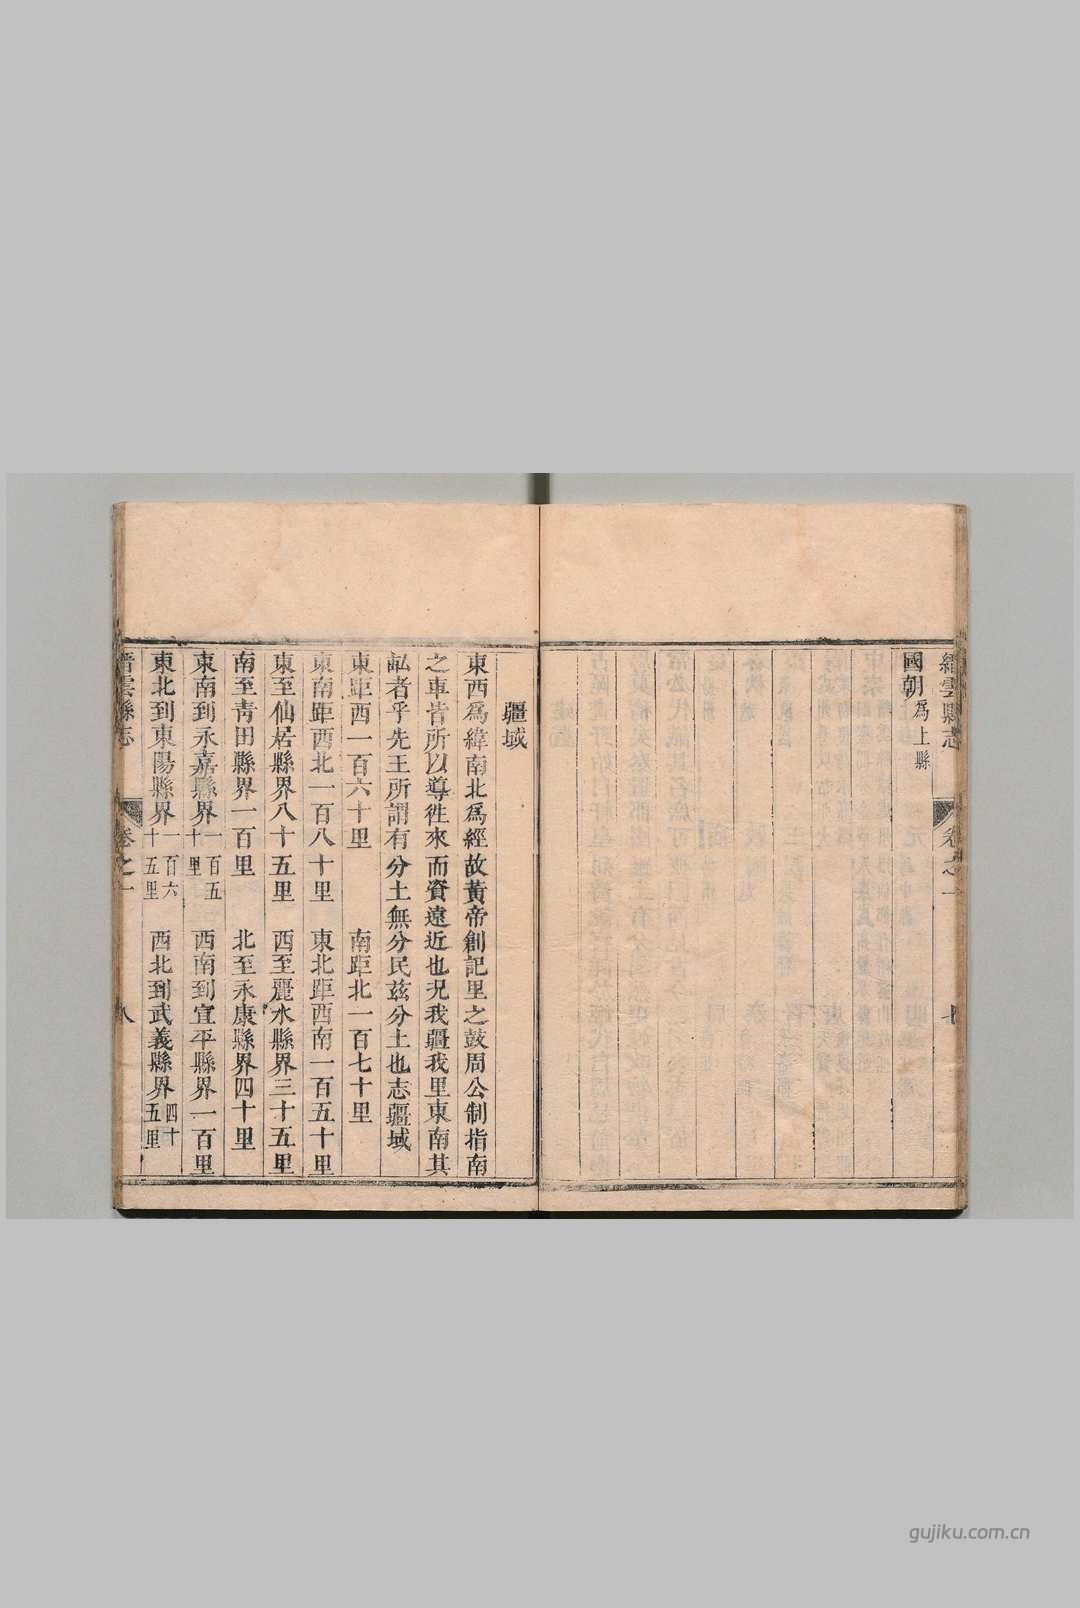 縉雲縣志
卷之一
七
國朝為上縣
疆域
東西為緯南北為經故黃帝創記里之鼓周公制指南
之車皆所以導徃來而資遠近也況我疆我里東南其
畝者乎先王所謂有分土無分民茲分土也志疆域
東距西一百六十里 南距北一百七十里
東南距西北一百八十里 東北距西南一百五十里
東至仙居縣界八十五里 西至麗水縣界三十五里
南至青田縣界一百里 北至永康縣界四十里
東南到永嘉縣界一百五十里 西南到宣平縣界一百里
東北到東陽縣界一百六十五里 西北到武義縣界四十五里
縉雲縣志
卷之一
八
gujiku.com.cn